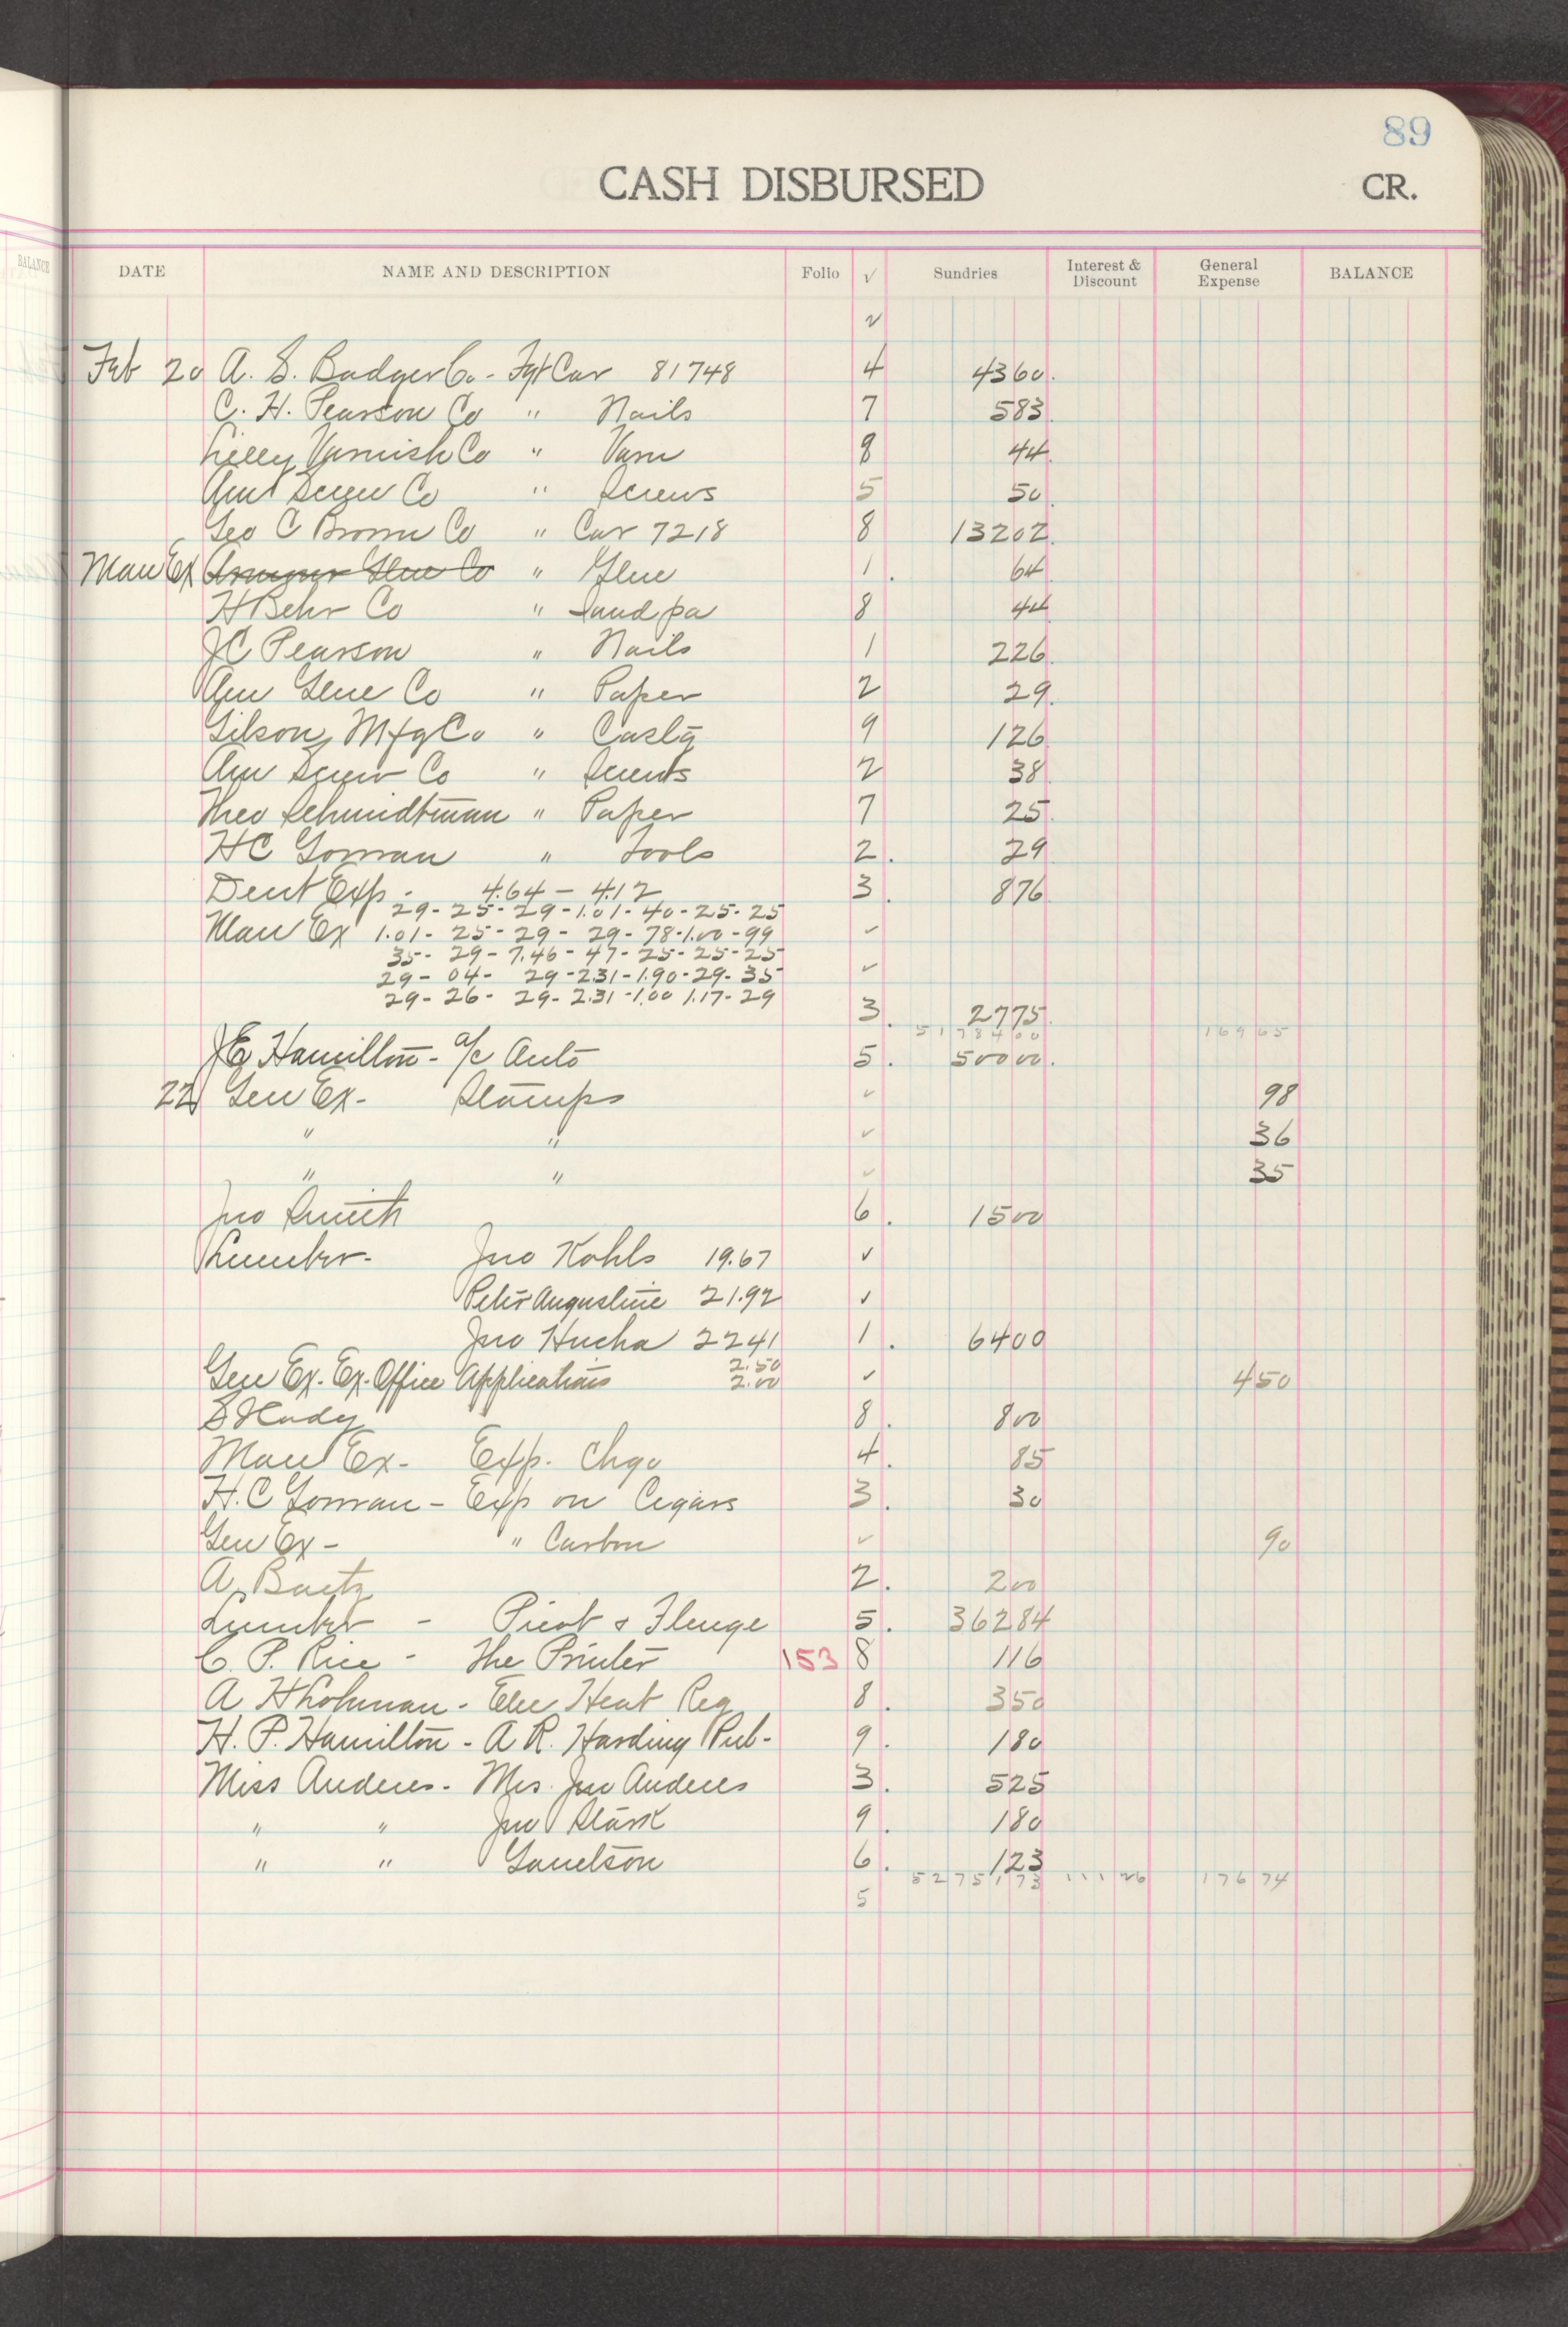 89
CASH DISBURSED CR.
BALANCE
DATE NAME AND DESCRIPTION Folio √ Sundries Interest & Discount General Expense BALANCE
✓
Feb 20 A. S. Badger Co - Fgt Car 81748 4 4360.
C. H. Pearson Co " Nails 7 583.
Lilly Varnish Co " Varn 8 44.
Am Screw Co " Screws 5 50
Geo C Brown Co " Car 7218 8 13202.
Man Ex Armour Glue Co " Glue 1. 64
H Behr Co " Sand pa 8 44
J C Pearson " Nails 1 226.
Am Glue Co " Paper 2 29.
Gilson Mfg Co " Castg 9 126
Am Screw Co " Screws 2 38
Theo Schmidtman " Paper 7 25.
H C Goman " Tools 2. 29
Dent Exp - 4.64 - 4.12 3. 876
29 - 25 - 29 - 1.01 - 40 - 25 - 25
Man Ex 1.01 - 25 - 29 - 29 - 78 - 1.00 - 99 ✓
35 - 29 - 7.46 - 47 - 25 - 25 - 25
29 - 04 - 29 - 2.31 - 1.90 - 29 - 35 ✓
29 - 26 - 29 - 2.31 - 1.00 1.17 - 29
3. 2775.
5178400 16965
J E Hamilton - a/c Auto 5. 50000.
22 Gen Ex - Stamps ✓ 98
" " ✓ 36
" " ✓ 35
Jno Smith 6. 1500
Lumber - Jno Kohls 19.67 ✓
Peter Augustine 21.92 ✓
Jno Hucha 2241 1. 6400
2.50
Gen Ex. Ex. Office Applications 2.00 ✓ 450
8. 800
Man Ex - Exp. Chgo 4. 85
H. C Goman - Exp on Cigars 3. 30
Gen Ex - " Carbon ✓ 90
A Baetz 2. 200
Lumber - Picot & Flenge 5. 36284
C. P. Rice - The Printer 153 8 116
A H Lohman - Elec Heat Reg 8. 350
H. P. Hamilton - A R. Harding Pub - 9. 180
Miss Anderes - Mrs. Jno Anderes 3. 525
" " Jno Stark 9. 180
" " 6. 123
5275173 11126 17674
5